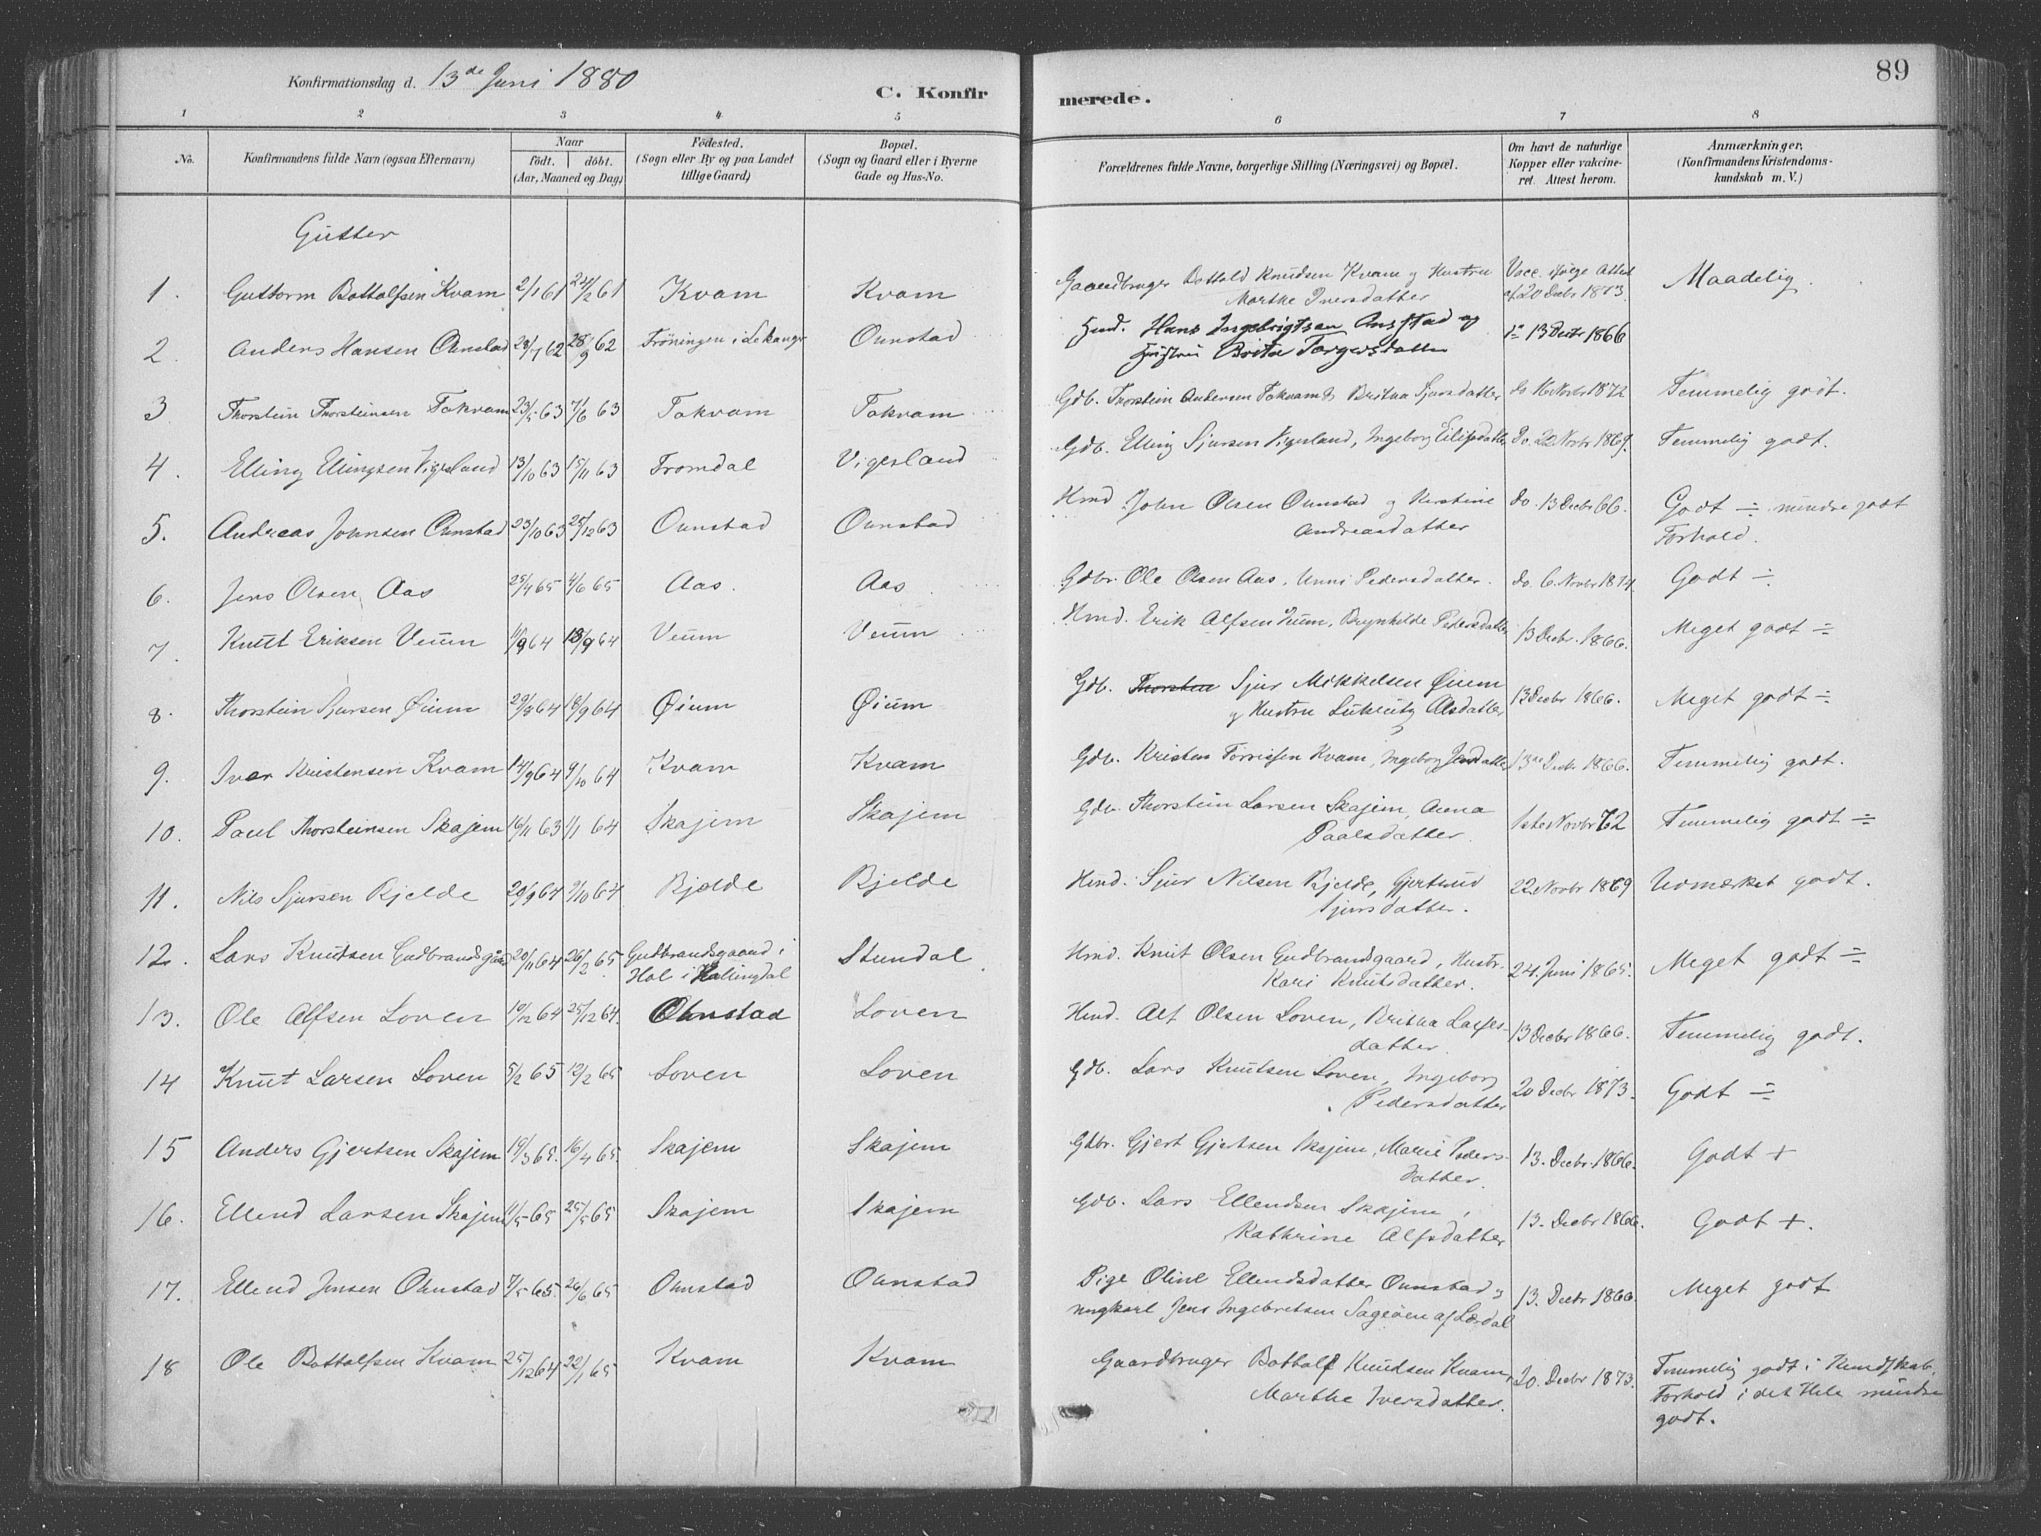 89
Konfirmationsdag d. 13de Juni 1880
C. Konfirmerede.
1 2 3 4 5 6 7 8
No. Konfirmandens fulde Navn (ogsaa Efternavn) Naar født. døbt. (Aar, Maaned og Dag) Fødested. (Sogn eller By og paa Landet tillige Gaard) Bopæl. (Sogn og Gaard eller i Byerne Gade og Hus-No. Forældrenes fulde Navne, borgerlige Stilling (Næringsvei) og Bopæl. Om havt de naturlige Kopper eller vakcineret. Attest herom. Anmærkninger. (Konfirmandens Kristendomskundskab m. V.)
Gutter
1. Guttorm Bottolfsen Kvam 2/1 61 24/2 61 Kvam Kvam Gaardbruger Bottold Knudsen Kvam og Hustru Marthe Iversdatter Vacc. ifølge Attest af 20 Decbr 1873. Maadelig.
2. Anders Hansen Ohnstad 28/7 62 28/9 62 Frøningen i Lekanger Ohnstad Hmd. Hans Ingebrigtsen Onstad og Hustru Brita Torgersdatter 13 Decbr 1866
3 Thorstein Thorsteinsen Tokvam 23/5 63 7/6 63 Tokvam Tokvam Gdb. Thorstein Andersen Tokvam & Britha Sjursdatter do 16 Novbr 1872 Temmelig godt.
4. Elling Ellingsen Vigesland 13/10 63 15/11 63 Fromdal Vigesland Gdb. Elling Sjursen Vigesland, Ingeborg Eilifsdatter Do. 22 Novbr 1869. Temmelig godt.
5. Andreas Johnsen Ohnstad 23/10 63 25/12 63 Ohnstad Ohnstad Hmd John Olsen Ohnstad og Kerstine Andreasdatter do. 13 Decbr 66. Godt ÷ mindre godt Forhold.
6. Jens Olsen Aas 25/4 65 4/6 65 Aas. Aas Gdbr. Ole Olsen Aas, Unni Pedersdatter. do. 6. Novbr 1874. Godt ÷
7. Knut Eriksen Veum 11/9 64 18/9 64 Veum Veum Hmd. Erik Alfsen Veum, Brynhilde Pedersdatter 13 Decbr. 1866. Meget godt ÷
8. Thorstein Sjursen Øium 29/8 64 18/9 64 Øium Øium Gdb. Sjur Mikkelsen Øium og Hustru Olsdatter 13 Decbr 1866. Meget godt ÷
9. Ivar Kristensen Kvam 14/9 64 9/10 64 Kvam Kvam Gdb. Kristen Kvam, Ingeborg Jensdatter 13de Decbr. 1866. Temmelig godt.
10. Paul Thorsteinsen Skajem 16/11 63 1/1 64 Skajem Skajem Gdb. Thorstein Larsen Skajem, Anna Paalsdatter 1ste Novbr 72 Temmelig godt ÷
11. Nils Sjursen Bjelde 20/9 64 9/10 64 Bjelde Bjelde Hmd. Sjur Nilsen Bjelde, Gjertrud Sjursdatter. 22 Novbr 1869 Udmærket godt.
12. Lars Knutsen Gudbrandsgaard 20/11 64 26/2 65 Gudbrandsgaard i Hol i Hallingdal Stundal Hmd. Knut Olsen Gudbrandsgaard, Hustr. Kari Knutsdatter. 24. Juni 1865. Meget godt ÷
13. Ole Alfsen Loven 10/12 64 25/12 64. Ohnstad Loven Hmd. Alf Olsen Loven, Britha Larsesdatter. 13 Decbr 1866. Temmelig godt.
14 Knut Larsen Loven 5/2 65 12/2 65 Loven Loven Gdb. Lars Knutsen Loven, Ingeborg Pedersdatter 20 Decbr 1873. Godt ÷
15 Anders Gjertsen Skajem 19/3 65. 16/4 65. Skajem Skajem Gdbr. Gjert Gjertsen Skajem, Marie Pedersdatter. 13. Decbr. 1866. Godt +
16. Ellend Larsen Skajem 11/5 65 25/5 65 Skajem Skajem Gdb. Lars Ellendsen Skajem, Kathrine Alfsdatter 13. Decbr 1866. Godt +.
17. Ellend Jensen Ohnstad 7/5 65. 26/6 65 Ohnstad Ohnstad Pige Oline Ellendsdatter Ohnstad og ungkarl Jens Ingebretsen Sageøen af Lærdal 13. Decbr 1866. Meget godt
18 Ole Bottolfsen Kvam 25/12 64 22/1 65 Kvam Kvam Gaardbruger Bottolf Knudsen Kvam, Marthe Iversdatter. 20. Decbr 1873. Temmelig godt i Kundskab. Forhold i det Hele mindre godt.